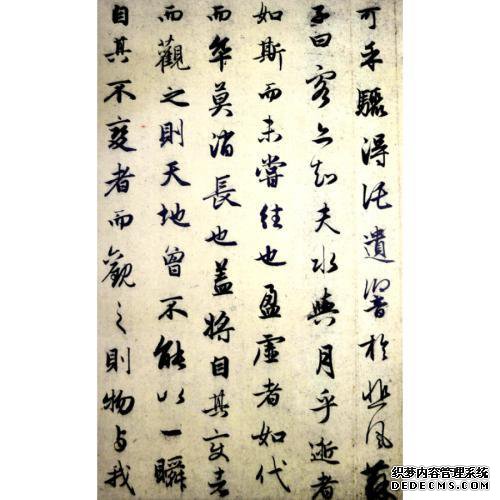 可乎驟得託遺響於悲風蘇
子曰客亦知夫水與月乎逝者
如斯而未嘗往也盈虛者如代
而卒莫消長也蓋將自其變者
而觀之則天地曾不能以一瞬
自其不變者而觀之則物與我
织梦内容管理系统
DEDECMS.COM